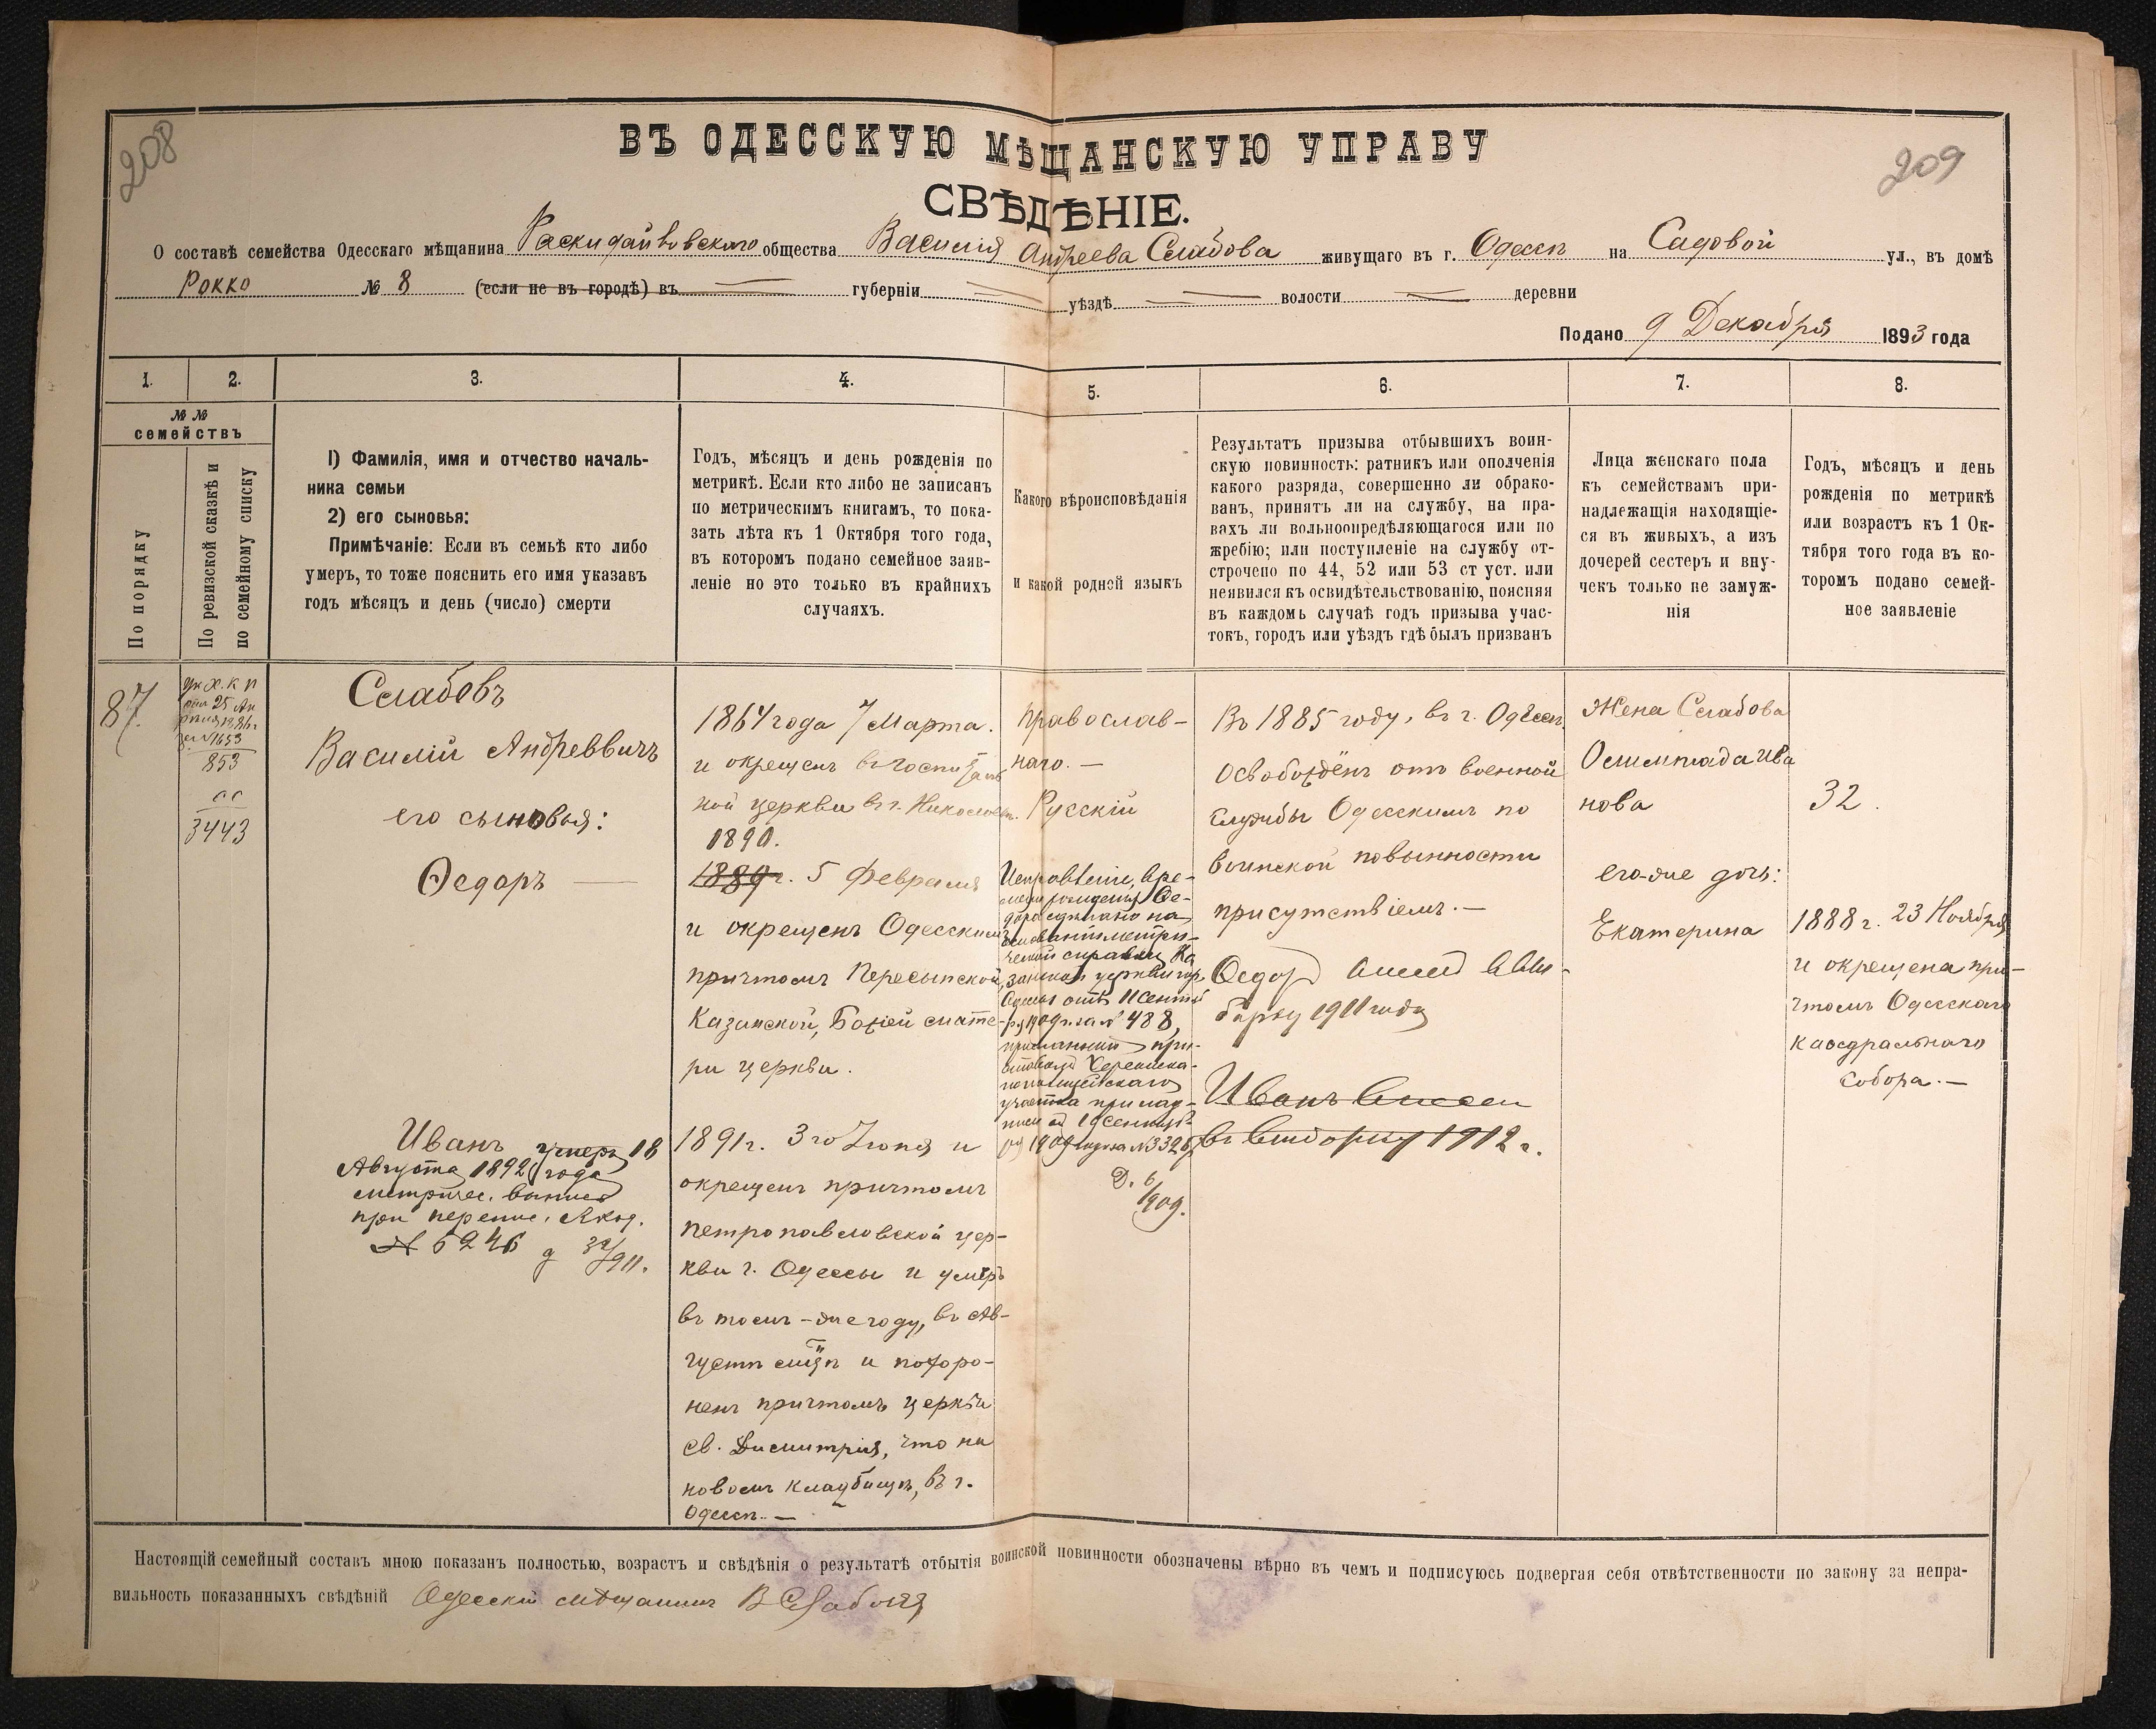 208
209
ВЪ ОДЕССКУЮ МѢЩАНСКУЮ УПРАВУ
СВѢДѢНІЕ.
О составѣ семейства Одесскаго мѣщанина Раскидайловскаго общества Василія Андреева Слабова живущаго въ г. Одессѣ на Садовой ул., въ домѣ
Рокко № 8 (если не въ городѣ) въ губерніи уѣздѣ волости деревни
Подано 9 Декабря 1893 года
1. 2. 3. 4. 5. 6. 7. 8.
№ №
семействъ
По порядку
По ревизской сказкѣ и
по семейному списку
1) Фамилія, имя и отчество началь-
ника семьи
2) его сыновья:
Примѣчаніе: Если въ семьѣ кто либо
умеръ, то тоже пояснить его имя указавъ
годъ мѣсяцъ и день (число) смерти
Годъ, мѣсяцъ и день рожденія по
метрикѣ. Если кто либо не записанъ
по метрическимъ книгамъ, то пока-
зать лѣта къ 1 Октября того года,
въ которомъ подано семейное заяв-
леніе но это только въ крайнихъ
случаяхъ.
Какого вѣроисповѣданія
и какой родной языкъ
Результатъ призыва отбывшихъ воин-
скую повинность: ратникъ или ополченія
какого разряда, совершенно ли обрако-
ванъ, принятъ ли на службу, на пра-
вахъ ли вольноопредѣляющагося или по
жребію; или поступленіе на службу от-
строчено по 44, 52 или 53 ст уст. или
неявился къ освидѣтельствованію, поясняя
въ каждомъ случаѣ годъ призыва учас-
токъ, городъ или уѣздъ гдѣ былъ призванъ
Лица женскаго пола
къ семействамъ при-
надлежащія находящіе-
ся въ живыхъ, а изъ
дочерей сестеръ и вну-
чекъ только не замуж-
нія
Годъ, мѣсяцъ и день
рожденія по метрикѣ
или возрастъ къ 1 Ок-
тября того года въ ко-
торомъ подано семей-
ное заявленіе
87.
ук Х. К П
25 Ап
1886 г
№ 1653
853
3443
Слабовъ
Василій Андреевичъ
его сыновья:
Ѳедоръ —
Иванъ умеръ 18
Августа 1892 года
метричес. выпись
при
№ 6246
1864 года 7 Марта.
и окрещенъ въ госпиталь
ной церкви въ г. Николаевѣ.
1890.
1889 г. 5 Февраля
и окрещенъ Одесскимъ
причтомъ Пересыпской,
Казанской, Божей мате-
ри церкви.
1891 г. 3 го Іюня и
окрещенъ причтомъ
петропавловской цер-
кви г. Одессы и умеръ
въ томъ-же году, въ Ав-
густѣ м-цѣ и похоро-
ненъ причтомъ церкви
Св. Димитрія, что на
новомъ кладбищѣ, въ г.
Одессѣ. —
православ-
наго. —
Русскій
Исправленіе, вре-
мени рожденія Ѳе-
дора сдѣлано на
основаніи метри-
ческой справки Ка
занской церкви гор.
Одессы отъ 11 Сентяб
ря 1909 г. за № 488,
присланной при-
ставомъ Херсонска-
го полицейскаго
участка при над-
писи отъ 19 Сентяб
ря 1909 года № 3326
1909.
Въ 1885 году, въ г. Одессѣ
Освобождёнъ отъ военной
службы Одесскимъ по
воинской повинности
присутствіемъ. —
Ѳедоръ внесенъ в Вы-
борку 1911 года
Иванъ внесен
въ Выборку 1912 г.
Жена Слабова
Олимпіада Ива
нова
его-же дочь:
Екатерина
32.
1888 г. 23 Ноября
и окрещена при-
чтомъ Одесскаго
каѳедральнаго
Собора. —
Настоящій семейный составъ мною показанъ полностью, возрастъ и свѣдѣнія о результатѣ отбытія воинской повинности обозначены вѣрно въ чемъ и подписуюсь подвергая себя отвѣтственности по закону за непра-
вильность показанныхъ свѣдѣній Одесскій мѣщанинъ В Слабовъ